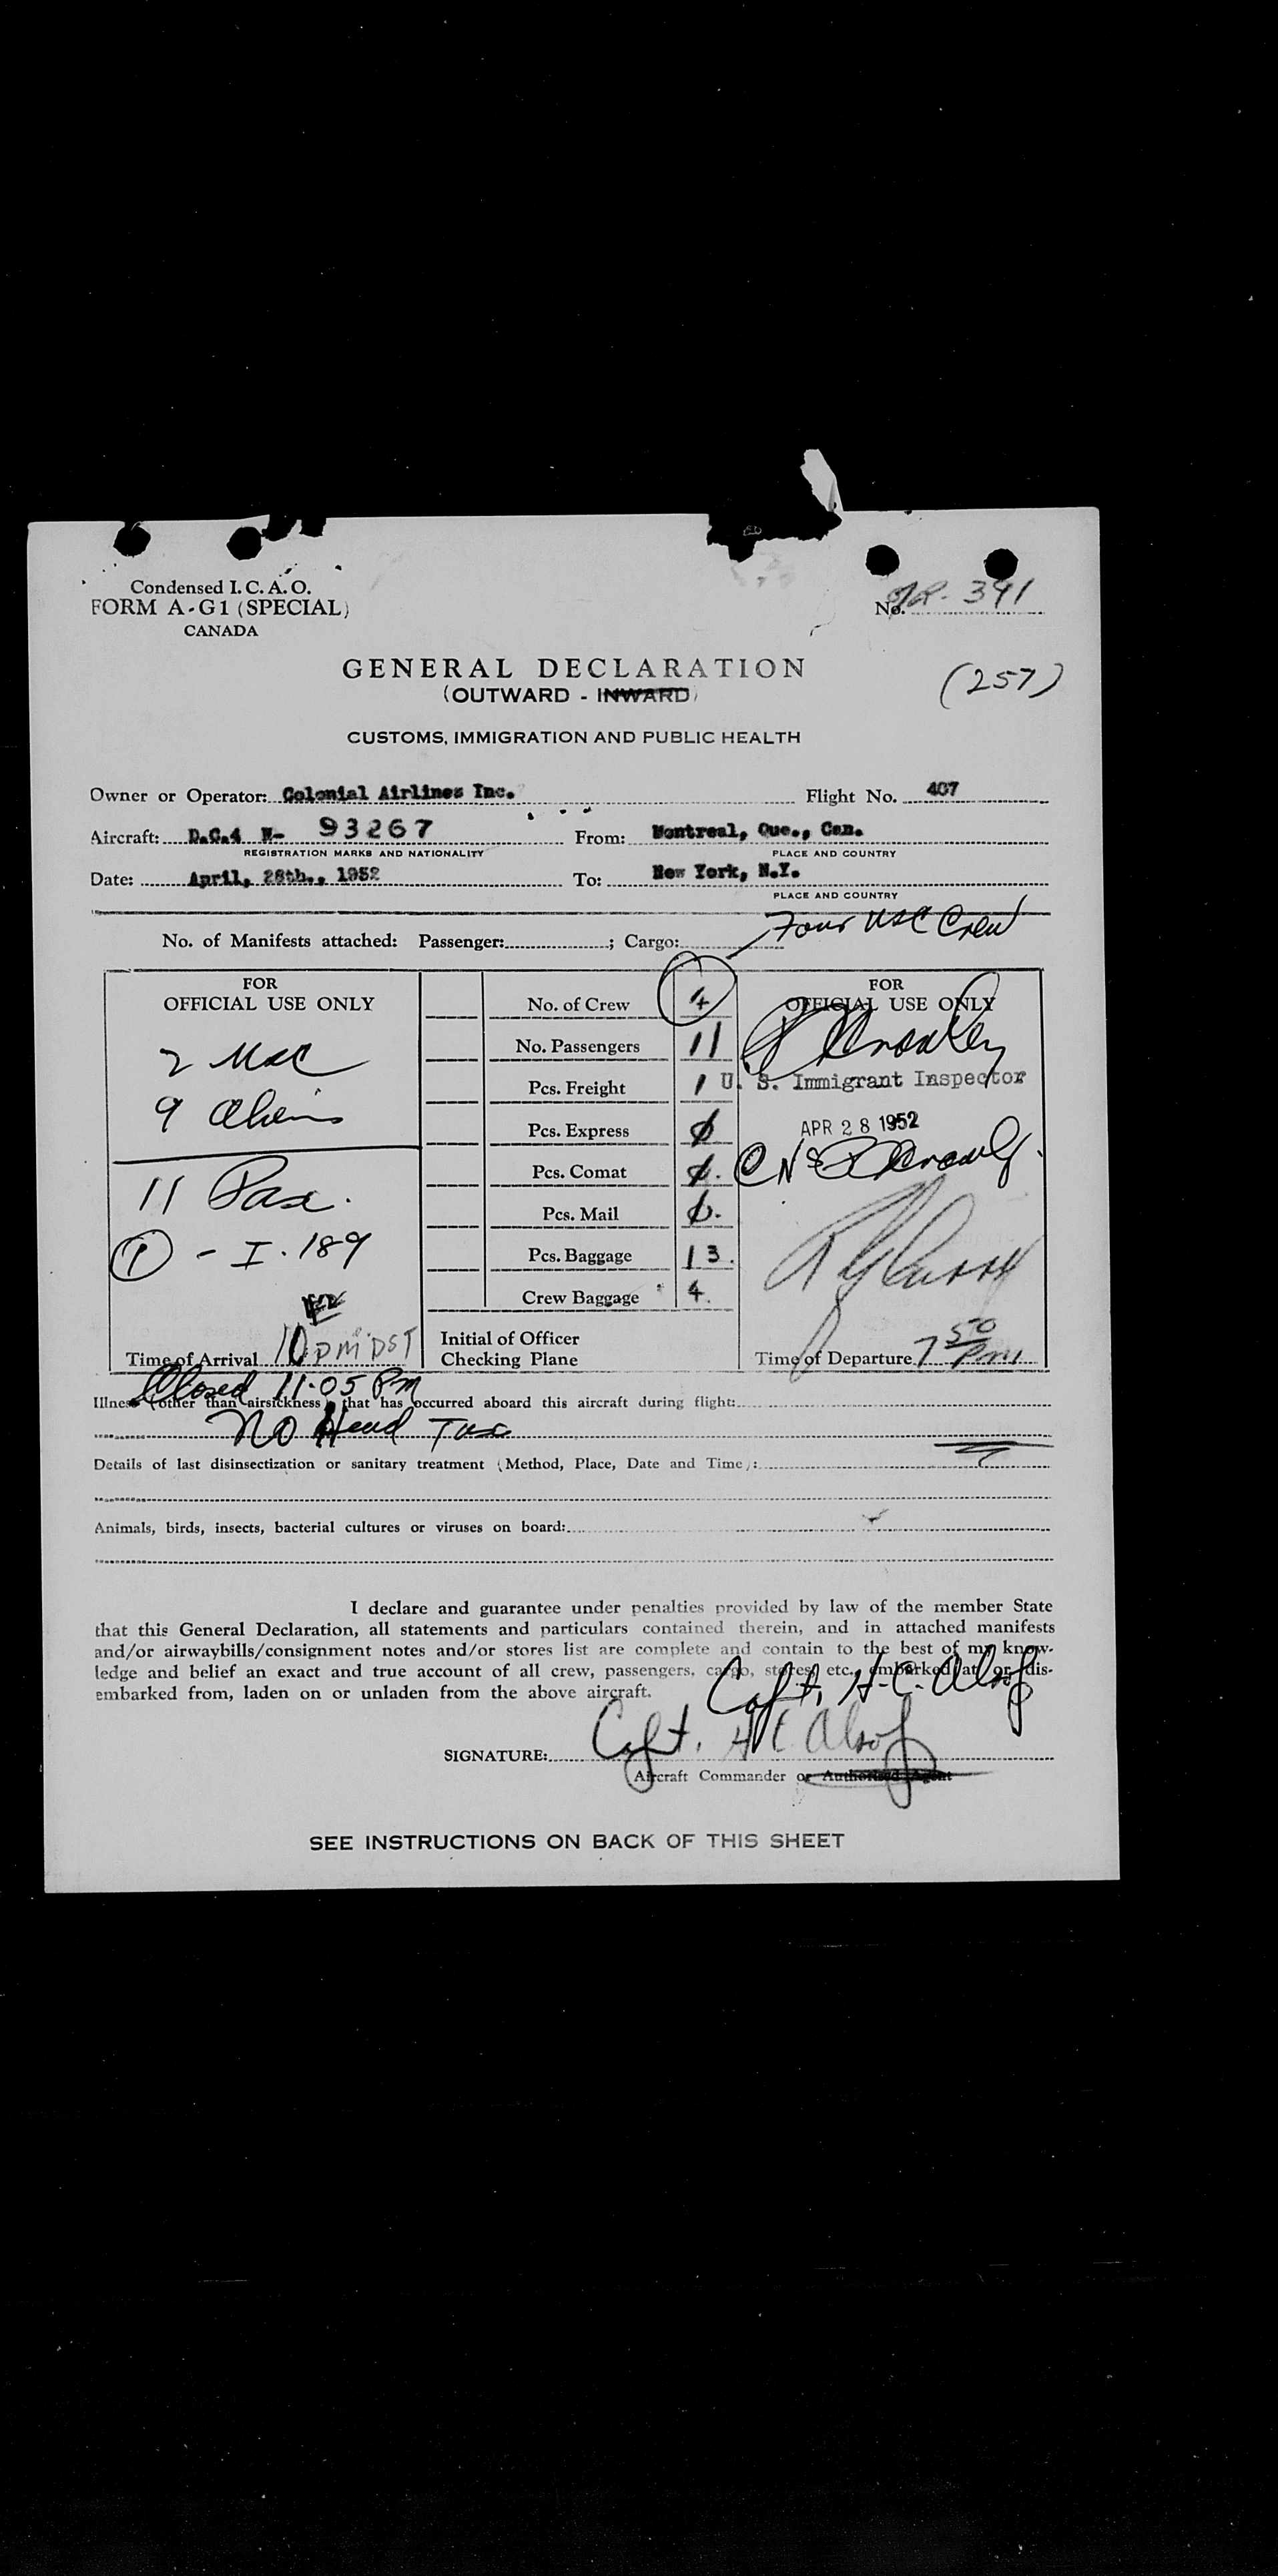 Condensed I. C. A. O.
FORM A-G1 (SPECIAL)
CANADA
No. 391
GENERAL DECLARATION
(OUTWARD - INWARD)
(257)
CUSTOMS, IMMIGRATION AND PUBLIC HEALTH
Owner or Operator: Colonial Airlines Inc. Flight No. 407
Aircraft: D.C.4 N- 93267 From: Montreal, Que., Can.
REGISTRATION MARKS AND NATIONALITY PLACE AND COUNTRY
Date: April, 28th., 1952 To: New York, N.Y.
PLACE AND COUNTRY
Four USC Crew
No. of Manifests attached: Passenger: ; Cargo:
FOR
OFFICIAL USE ONLY
2 USC
9 Aliens
11 Pax.
(1) - I. 189
Time of Arrival 10 PM DST
No. of Crew 4
No. Passengers 11
Pcs. Freight 1
Pcs. Express 0
Pcs. Comat 0.
Pcs. Mail 0.
Pcs. Baggage 13.
Crew Baggage 4.
Initial of Officer
Checking Plane
FOR
OFFICIAL USE ONLY
U. S. Immigrant Inspector
APR 28 1952
Time of Departure 7 50 PM
Closed 11.05 PM
Illness (other than airsickness) that has occurred aboard this aircraft during flight:
No Head Tax
Details of last disinsectization or sanitary treatment (Method, Place, Date and Time):
Animals, birds, insects, bacterial cultures or viruses on board:
I declare and guarantee under penalties provided by law of the member State
that this General Declaration, all statements and particulars contained therein, and in attached manifests
and/or airwaybills/consignment notes and/or stores list are complete and contain to the best of my know-
ledge and belief an exact and true account of all crew, passengers, cargo, stores, etc., embarked at, or dis-
embarked from, laden on or unladen from the above aircraft.
Capt. H. C. Alsop
SIGNATURE: Capt. H C Alsop
Aircraft Commander or Authorized Agent
SEE INSTRUCTIONS ON BACK OF THIS SHEET